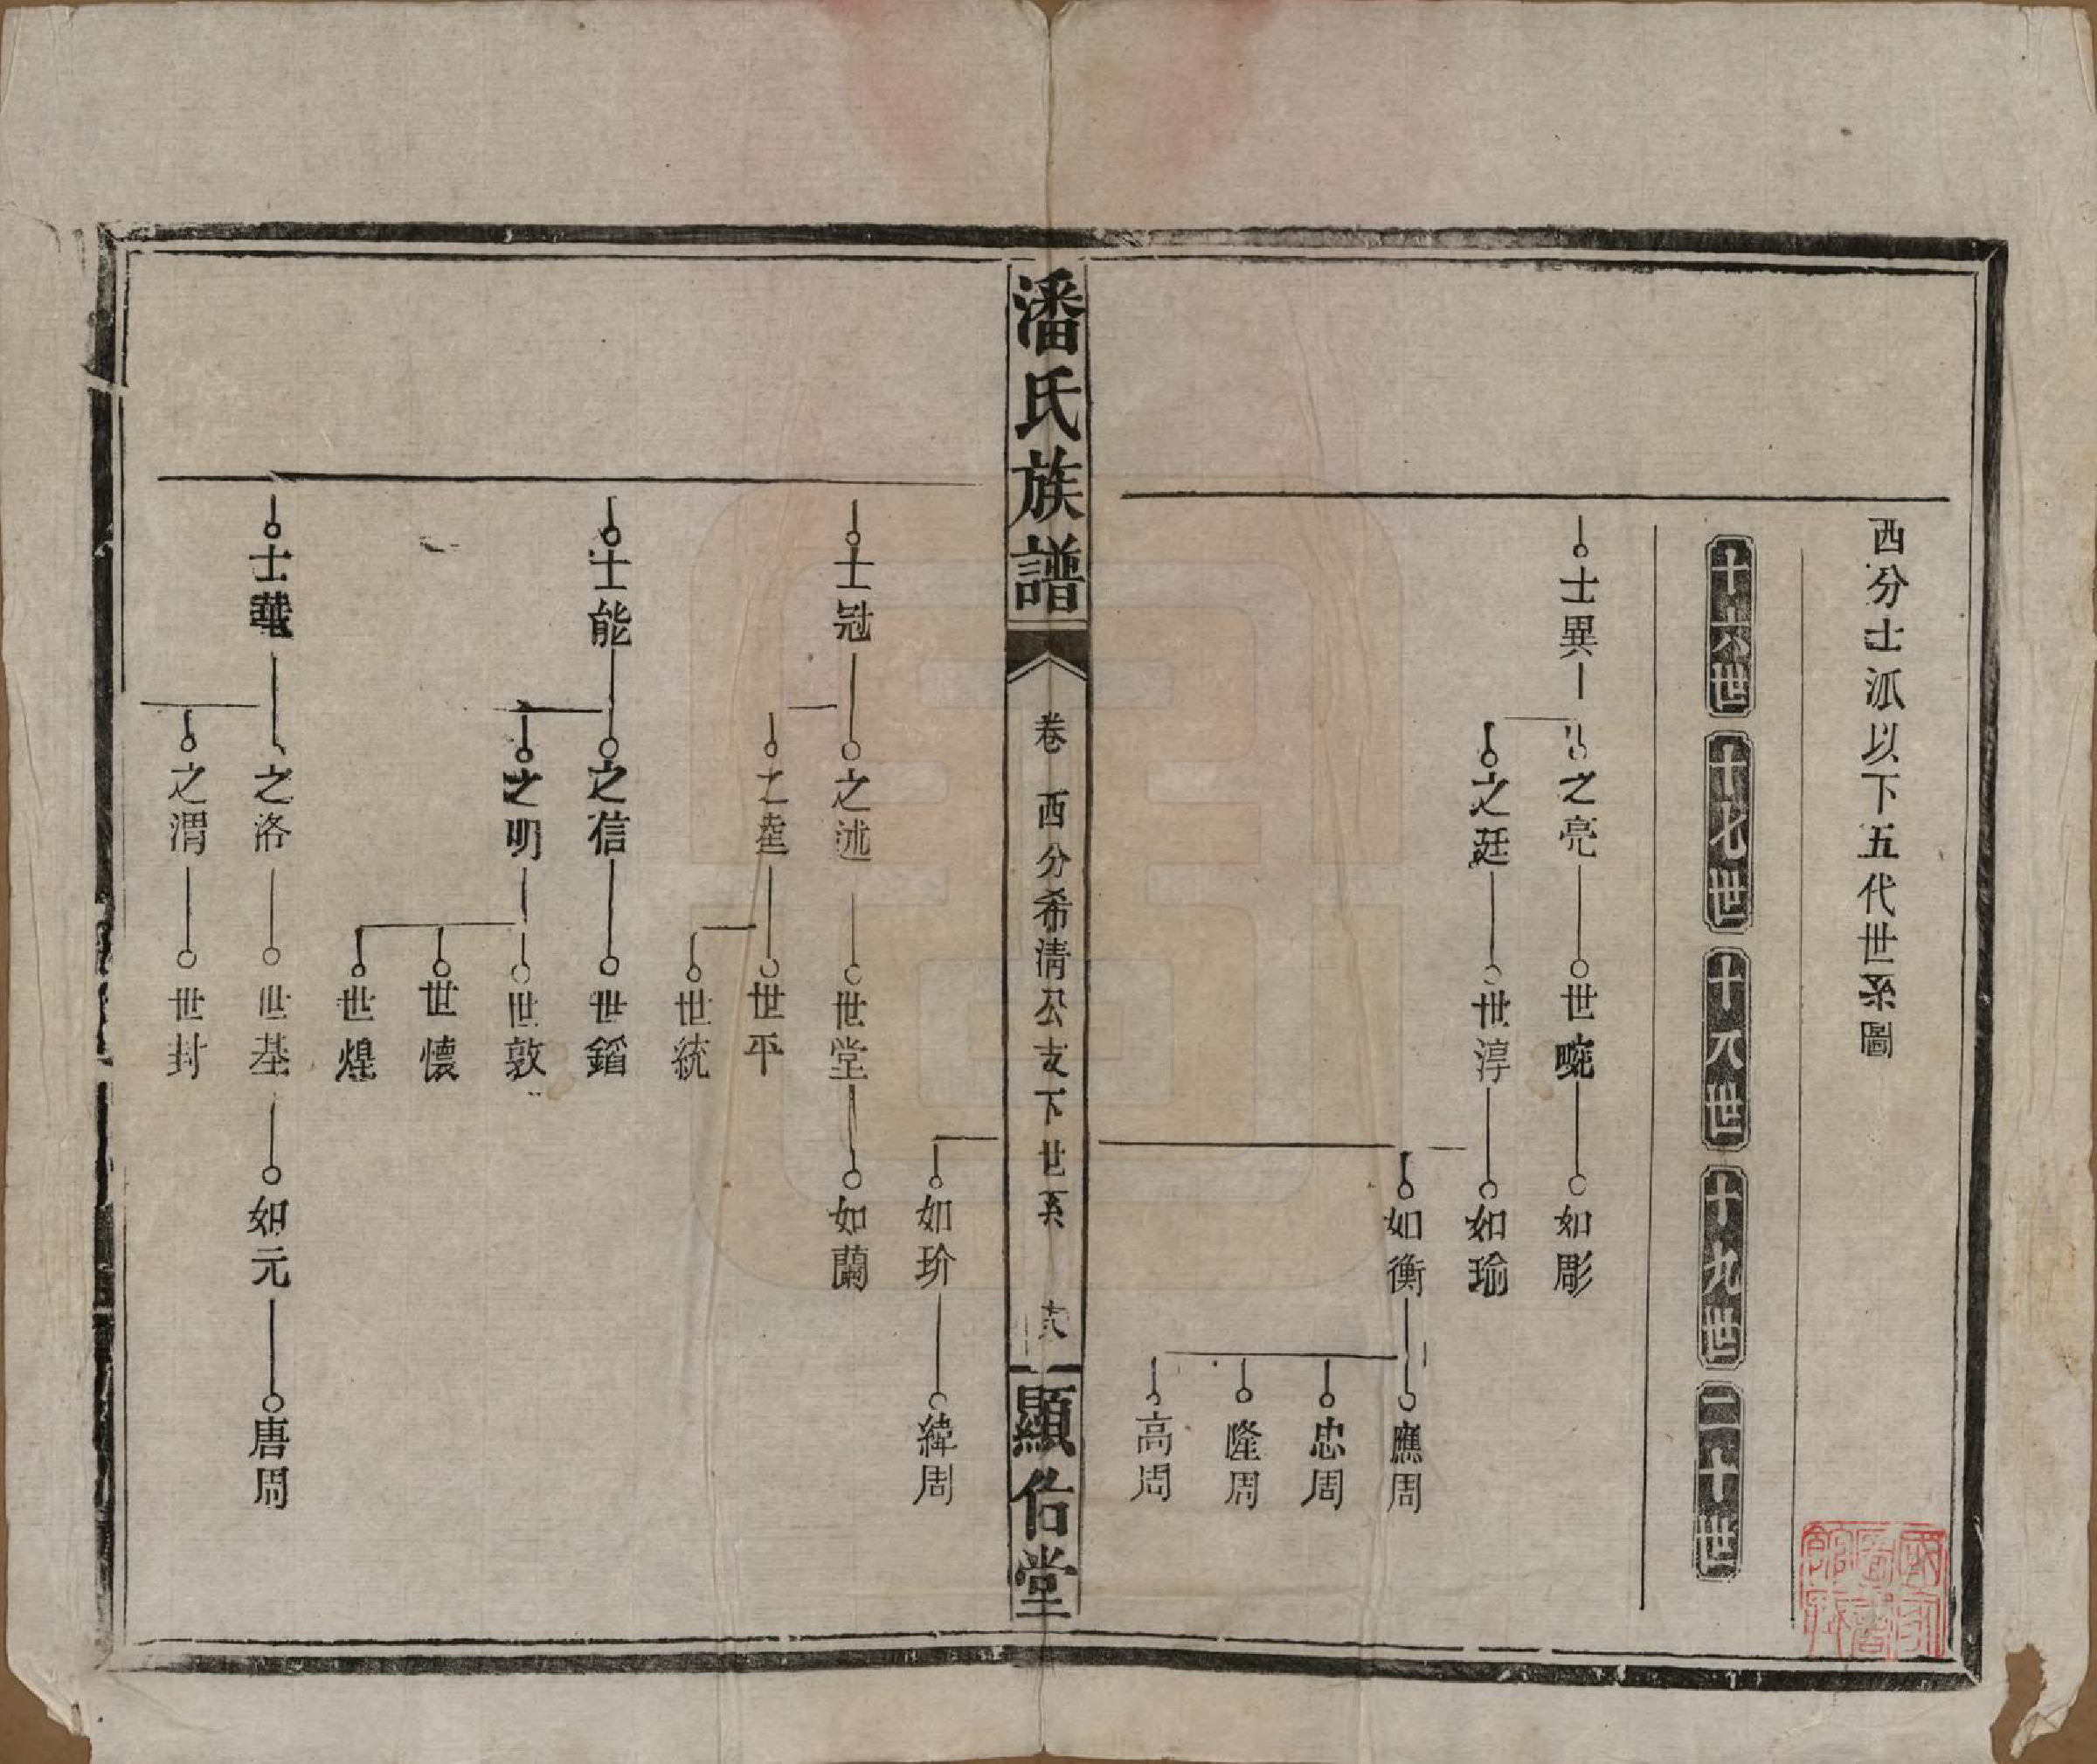 西分士派以下五代世系圖
十六世
十七世
十八世
十九世
二十世
士異
之亮
世畹
如彫
之廷
世淳
如瑜
如衡
應周
忠周
隆周
高周
潘氏族譜
卷 西分希清公支下世系
六
顯佑堂
如玠
緯周
士冠
之述
世堂
如蘭
之逵
世平
世統
士能
之信
世鎦
之明
世敦
世懷
世煌
士華
之洛
世基
如元
唐周
之渭
世封
國家圖書館藏